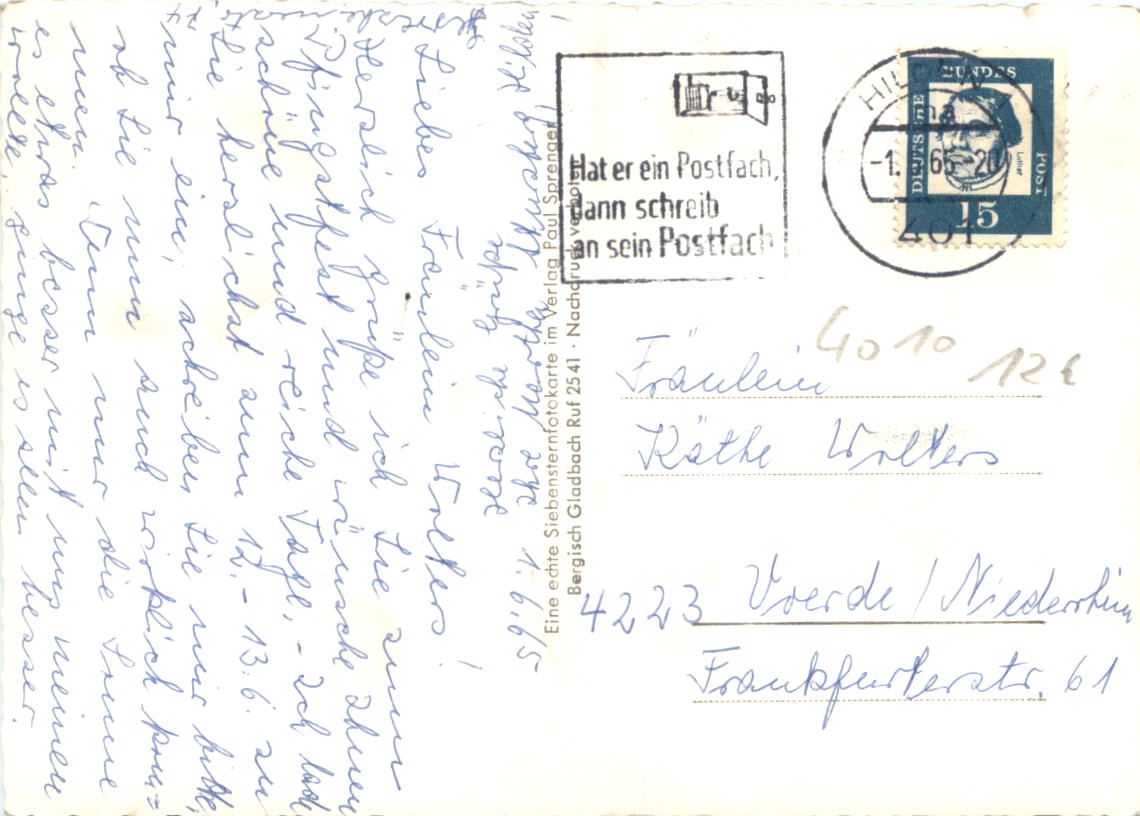 1.6.65
Liebes Fräulein Wolters!
Herzlich grüße ich Sie zum
Pfingstfest und wünsche Ihnen
schöne und reiche Tage. - Ich lade
Sie herzlichst zum 12. - 13.6. zu
mir ein, schreiben Sie mir bitte,
ob Sie nun auch wirklich kom=
men. Wenn nur die Sonne
es etwas besser mit uns meinen
wollte, ginge es allen besser.
Herzliche Grüße
Ihre Marthe
Eine echte Siebensternfotokarte im Verlag Paul Sprenger
Bergisch Gladbach Ruf 2541 · Nachdruck verboten
Hat er ein Postfach,
dann schreib
an sein Postfach
HILDEN
-1. 65-20
401
DEUTSCHE BUNDESPOST
Luther
15
4010 12
Fräulein
Käthe Wolters
4223 Voerde / Niederrhein
Frankfurterstr. 61